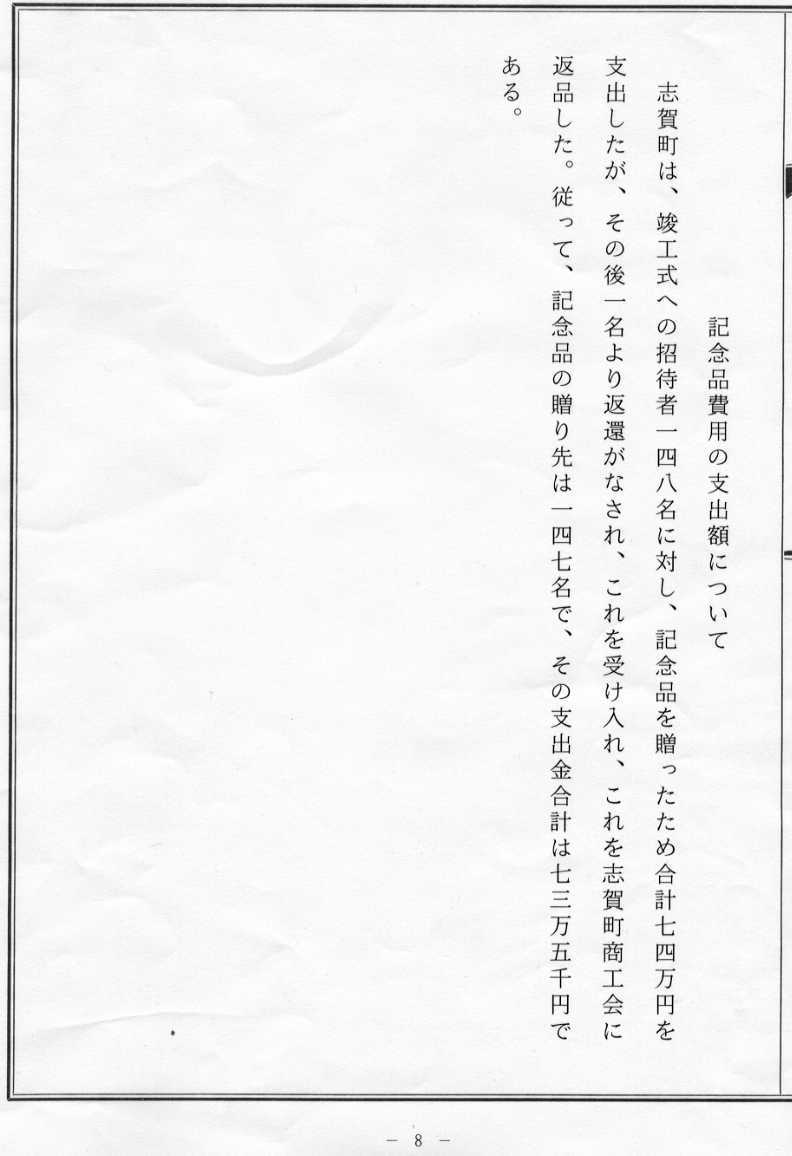 記念品費用の支出額について
志賀町は、竣工式への招待者一四八名に対し、記念品を贈ったため合計七四万円を
支出したが、その後一名より返還がなされ、これを受け入れ、これを志賀町商工会に
返品した。従って、記念品の贈り先は一四七名で、その支出金合計は七三万五千円で
ある。
－ 8 －